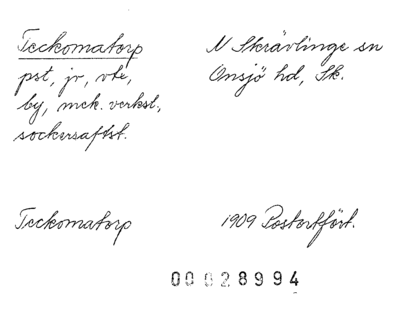 Teckomatorp
N Skrävlinge sn
pst, jv, vte,
Onsjö hd, Sk.
by, mek. verkst.,
sockersaftst.
Teckomatorp
1909 Postortfört.
00028994